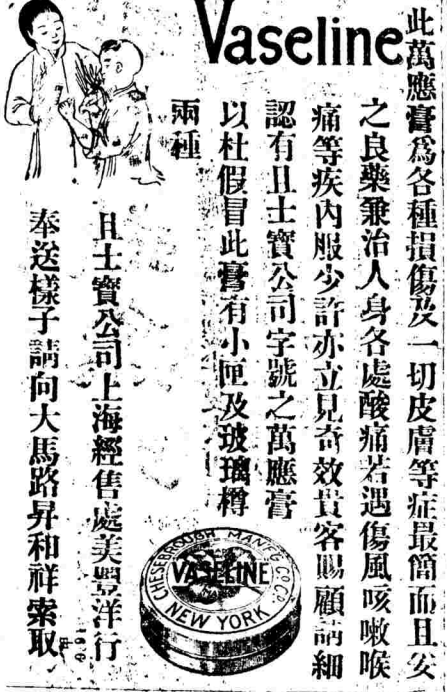 Vaseline
此萬應膏爲各種損傷及一切皮膚等症最簡而且安
之良藥兼治人身各處酸痛若遇傷風咳嗽喉
痛等疾內服少許亦立見奇效貴客賜顧請細
認有且士寶公司字號之萬應膏
以杜假冒此膏有小匣及玻璃樽
兩種
且士寶公司上海經售處美豐洋行
奉送樣子請向大馬路昇和祥索取
CHESEBROUGH MANF'G CO
VASELINE
NEW YORK